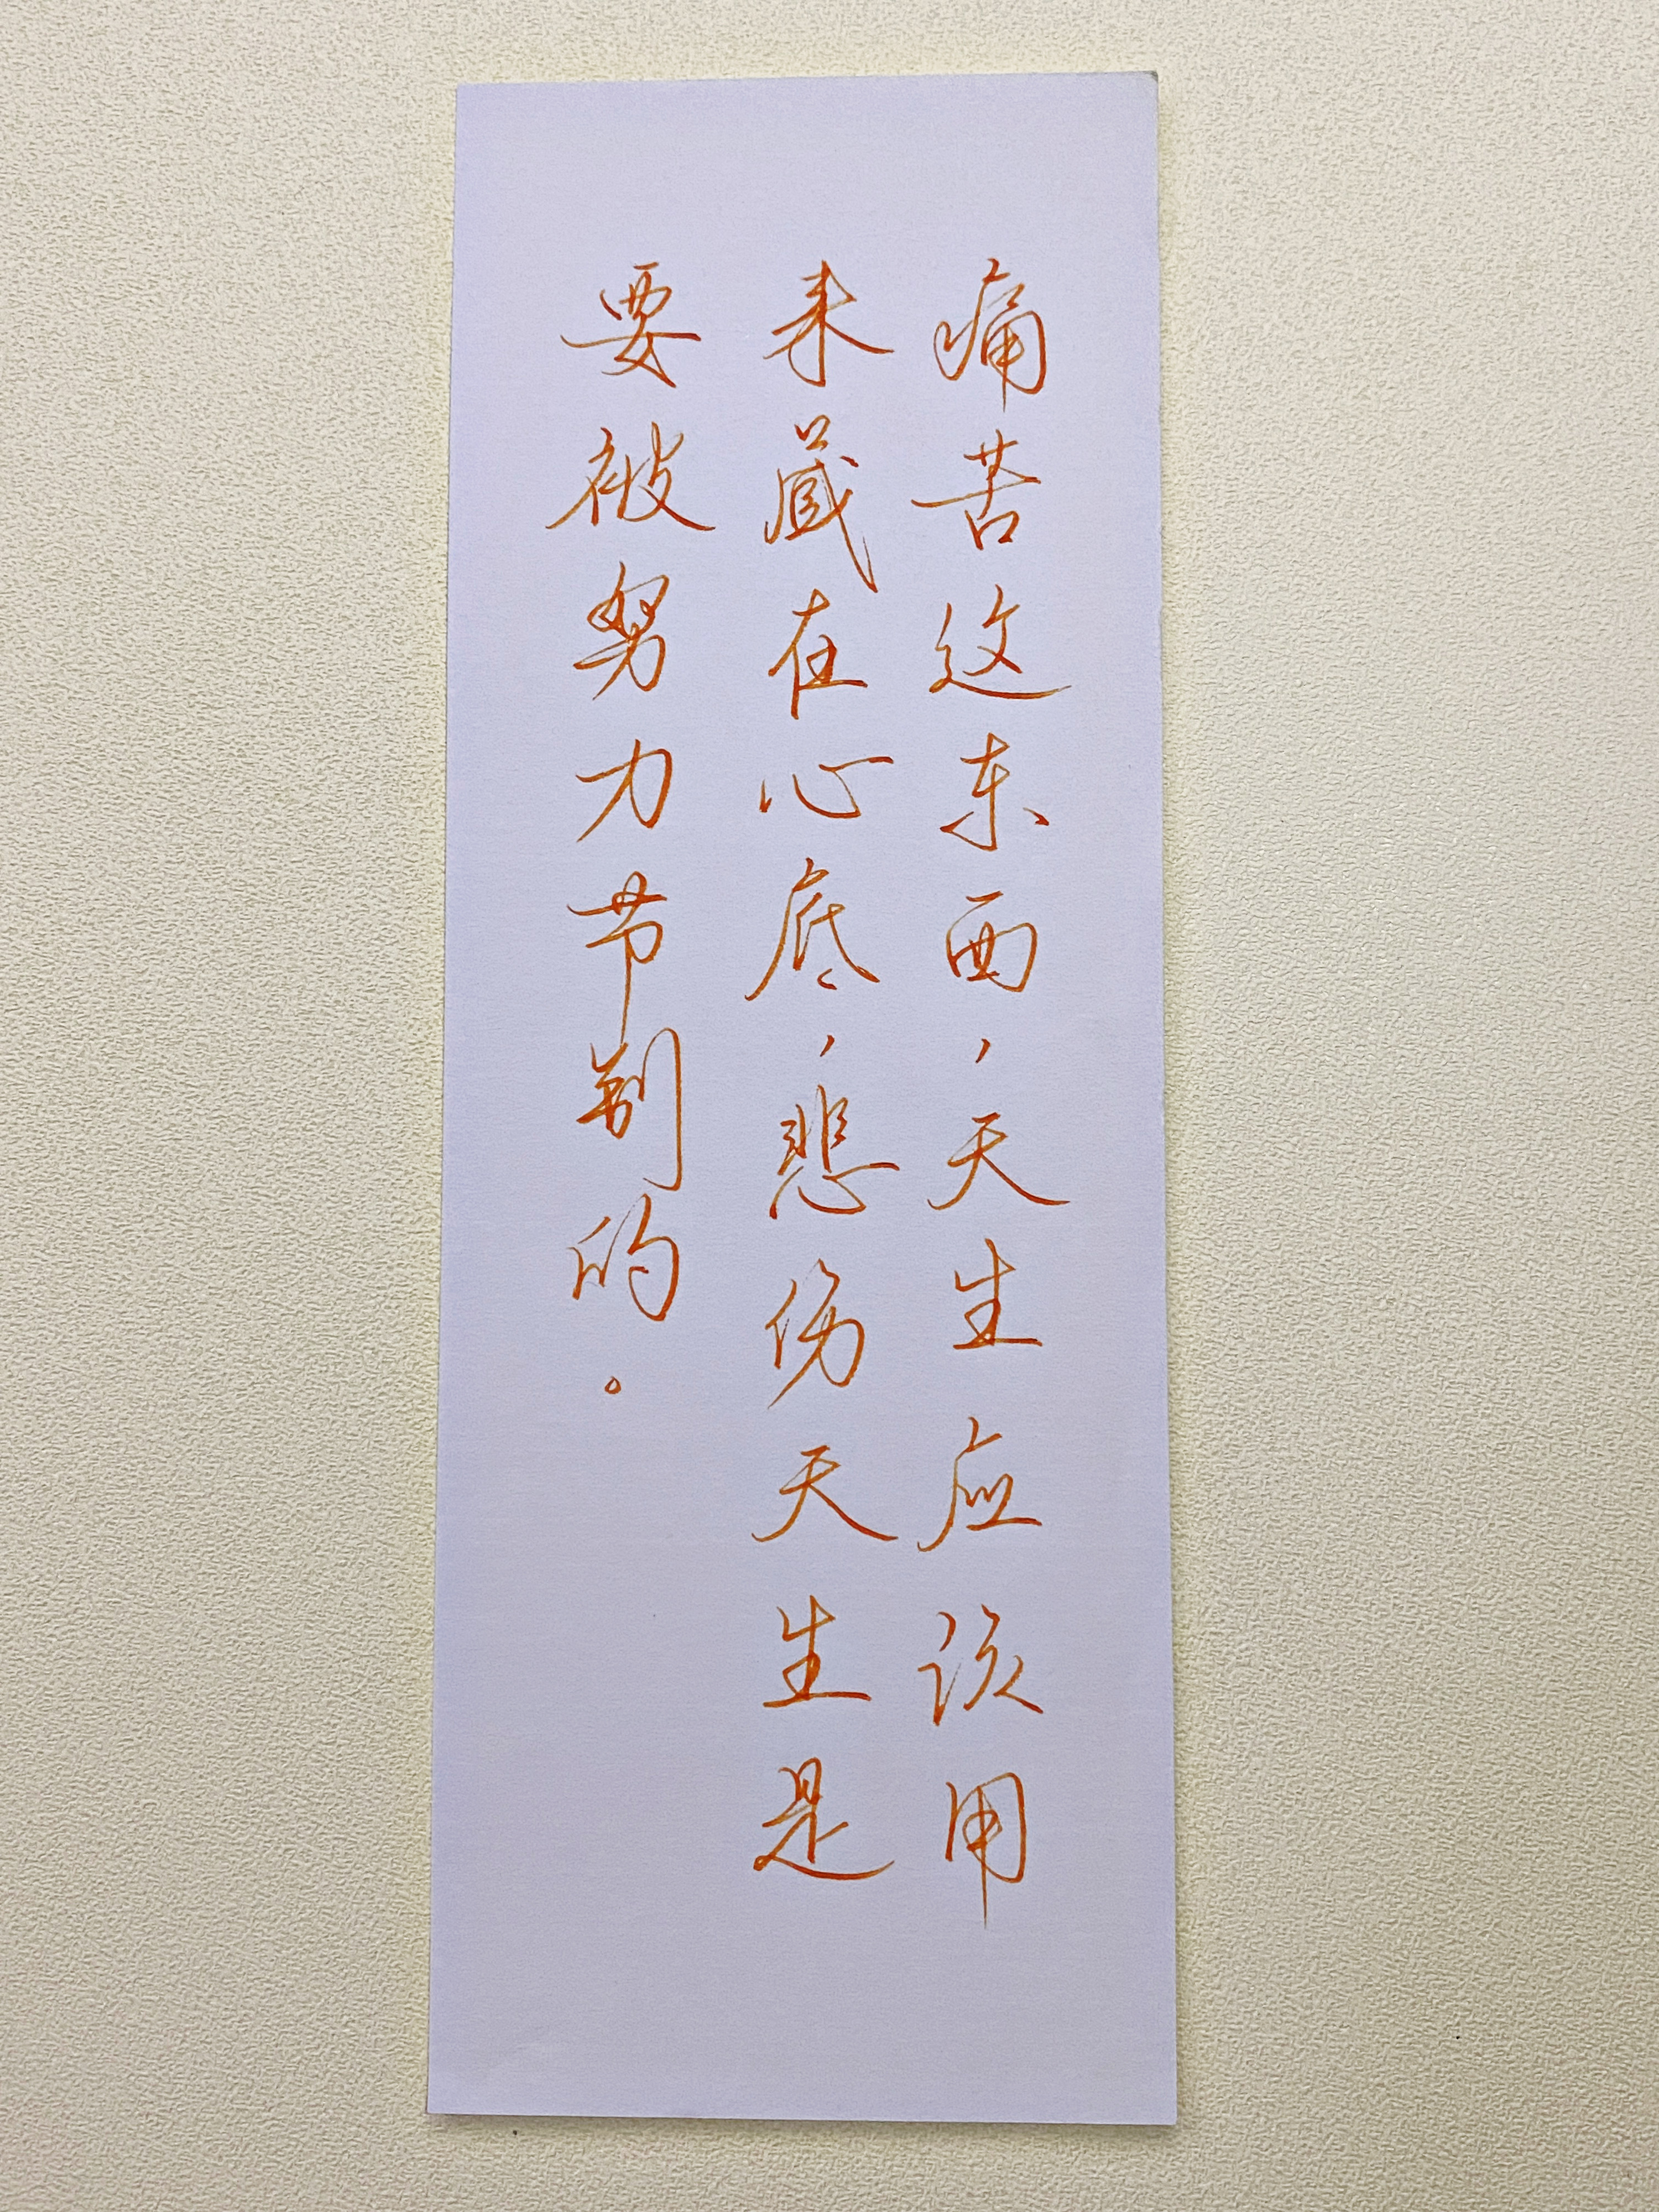 痛苦这东西,天生应该用
来藏在心底,悲伤天生是
要被努力节制的。